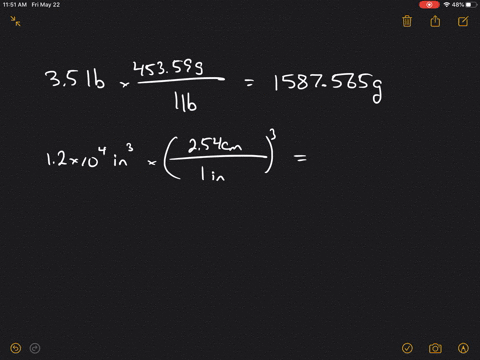 11:51 AM Fri May 22 48%
3.5 lb × 453.59g / 1lb = 1587.565g
1.2×10⁴ in³ × (2.54cm / 1 in)³ =